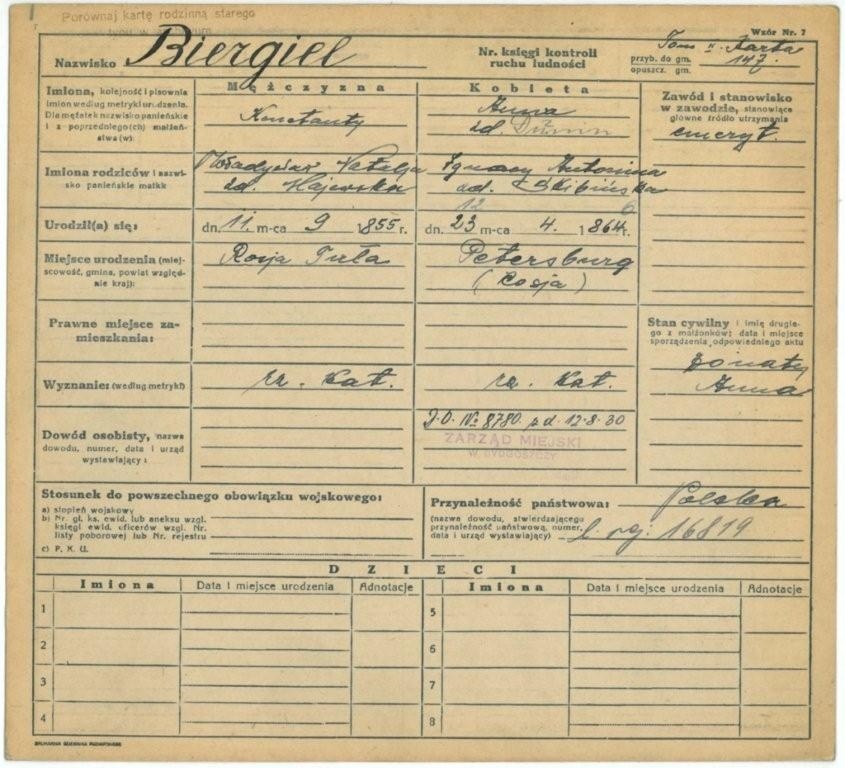 Porównaj kartę rodzinną starego
typu w archiwum
Wzór Nr. 7
Nazwisko Biergiel
Nr. księgi kontroli
ruchu ludności
Tom II. Karta
przyb. do gm. 147.
opuszcz. gm.
Imiona, kolejność i pisownia
imion według metryki urodzenia.
Dla mężatek nazwisko panieńskie
i z poprzedniego(ch) małżeń-
stwa (w):
Mężczyzna
Konstanty
Kobieta
Anna
zd.
Zawód i stanowisko
w zawodzie, stanowiące
główne źródło utrzymania
emeryt.
Imiona rodziców i nazwi-
sko panieńskie matki
Władysław Natalja
zd. Majewska
Ignacy Antonina
zd. Skibińska
12 6
Urodził(a) się:
dn. 11. m-ca 9 1855 r.
dn. 23 m-ca 4. 1864 r.
Miejsce urodzenia (miej-
scowość, gmina, powiat względ-
nie kraj):
Rosja Tuła
Petersburg
(Rosja)
Prawne miejsce za-
mieszkania:
Stan cywilny i imię drugie-
go z małżonków; data i miejsce
sporządzenia odpowiedniego aktu
żonaty
Anna
Wyznanie: (według metryki)
rz. kat.
rz. kat.
Dowód osobisty, nazwa
dowodu, numer, data i urząd
wystawiający:
D.O. № 8780. z d. 12.8.30
ZARZĄD MIEJSKI
W BYDGOSZCZY
Stosunek do powszechnego obowiązku wojskowego:
a) stopień wojskowy
b) Nr. gł. ks. ewid. lub aneksu wzgl.
księgi ewid. oficerów wzgl. Nr.
listy poborowej lub Nr. rejestru
c) P. K. U.
Przynależność państwowa: Polska
(nazwa dowodu, stwierdzającego
przynależność państwową, numer,
data i urząd wystawiający) 16819
DZIECI
Imiona Data i miejsce urodzenia Adnotacje Imiona Data i miejsce urodzenia Adnotacje
1 5
2 6
3 7
4 8